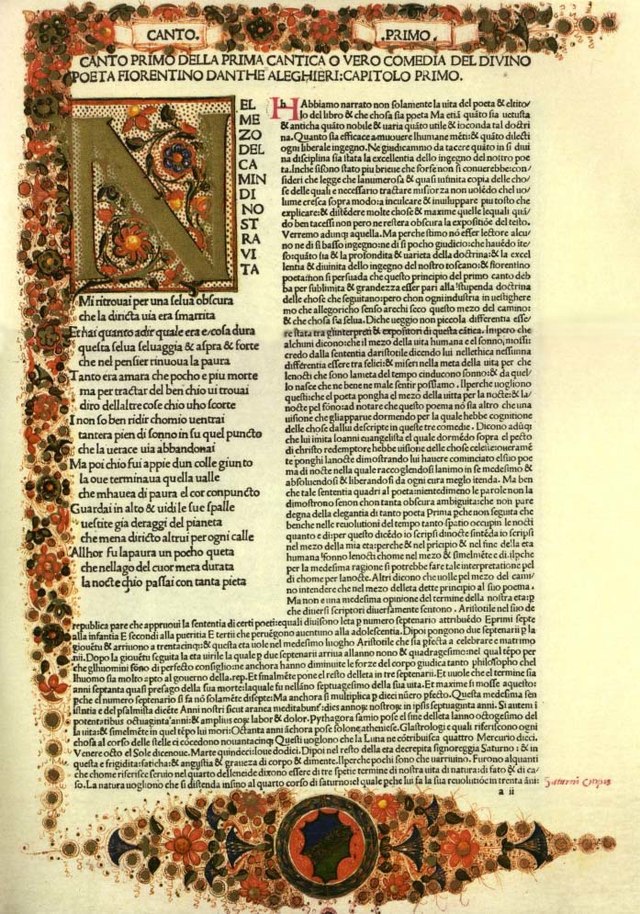 CANTO.
PRIMO.
CANTO PRIMO DELLA PRIMA CANTICA O VERO COMEDIA DEL DIVINO
POETA FIORENTINO DANTHE ALEGHIERI: CAPITOLO PRIMO.
N
EL
MEZO
DEL
CAMIN
DI NO
STRA
VITA
Mi ritrouai per una selua obscura
che la diricta uia era smarrita
Et ha quanto adir quale era e/cosa dura
questa selua seluaggia & aspra & forte
che nel pensier rinuoua la paura
Tanto era amara che pocho e piu morte
ma per tractar del ben chio ui trouai
diro dellaltre cose chio uho scorte
I non so ben ridir chomio uentrai
tantera pien di sonno in su quel puncto
che la uerace uia abbandonai
Ma poi chio fui appie dun colle giunto
la oue terminaua quella ualle
che mhauea di paura el cor conpuncto
Guardai in alto & uidi le sue spalle
uestite gia deraggi del pianeta
che mena diricto altrui per ogni calle
Allhor fu la paura un pocho queta
che nellago del cuor mera durata
la nocte chio passai con tanta pieta
HAbbiamo narrato non solamente la uita del poeta & eltito/
lo del libro & che chosa sia poeta Ma etiā quāto sia uetusta
& anticha quāto nobile & uaria quāto utile & ioconda tal doctri
na. Quanto sia efficace a muouere lhumane mēti: & quāto dilecti
ogni liberale ingegno. Ne giudicammo da tacere quāto in si diui
na disciplina sia stata la excellentia dello ingegno del nostro poe
ta. Inche sisono stato piu brieue che forse non si conuerrebbe: con
sideri che legge che lanumerosa & quasi infinita copia delle cho/
se delle quali e necessario tractare misforza non uolēdo chel uo/
lume cresca sopra modo: a inculcare & inuiluppare piu tosto che
explicare: & distēdere molte chose & maxime quelle lequali quā/
do ben tacessi non pero ne restera obscura la expositiōe del texto.
Verremo adunq; aquella. Ma perche stimo nō esser lectore alcu/
no ne di si basso ingegno: ne di si pocho giudicio: che hauēdo īte/
so: quāto sia & la profondita & uarieta della doctrina: & la excel
lentia & diuinita dello ingegno del nostro toscano: & fiorentino
poeta: non si persuada che questo principio del primo canto deb/
ba per sublimita & grandezza esser pari alla stupenda doctrina
delle chose che seguitano: pero chon ogni industria in uestighere
mo che allegoricho senso arechi seco questo mezo del camino: &
che chosa sia selua. Diche ueggio non piccola differentia esse/
re stata tra glinterpreti & expositori di questa cātica. Impero che
alchuni dicono: che il mezo della uita humana e el sonno, mossi:
credo dalla sententia daristotile dicendo lui nellethica nessuna
differentia essere tra felici: & miseri nella meta della uita per che
le nocti che sono la meta del tempo cinducono sonno: & da quel/
lo nasce che ne bene ne male sentir possiamo. Ilperche uogliono
questi: che el poeta pongha el mezo della uita per la nocte: & la/
nocte pel sōno: ad notare che questo poema nō sia altro che una
uisione che gliapparue dormendo per la quale hebbe cognitione
delle chose dallui descripte in queste tre comedie. Dicono adūq;
che lui imita Ioanni euangelista el quale dormēdo sopra el pecto
di christo redemptore hebbe uisione delle chose celeste: oueramē
te ponghi la nocte dimostrando lui hauere cominciato el suo poe
ma di nocte nella quale raccoglendosi lanimo in se medesimo &
absoluendosi & liberandosi da ogni cura meglo itenda. Ma ben
che tale sententia quadri al poeta nientedimeno le parole non la
dimostrono senon chon tanta obscura ambiguita: che non pare
degna della elegantia di tanto poeta Prima pche non seguita che
benche nelle reuolutioni del tempo tanto spatio occupin le nocti
quanto e di: per questo dicēdo io scripsi di nocte sintēda io scripsi
nel mezo della mia eta: perche & nel pricipio & nel fine della eta
humana sono le nocti chome nel mezo & similmēte e di. ilpche
per la medesima ragione si potrebbe fare tale interpretatione pel
di chome per la nocte. Altri dicono che uolle pel mezo del cami/
no intendere che nel mezo delleta dette principio al suo poema.
Ma non e una medesima opinione del termine della nostra eta: p
che diuersi scriptori diuersamente sentono. Aristotile nel suo de
republica pare che approui la sententia di certi poeti: equali diuisono leta p numero septenario attribuēdo Eprimi septe
alla infantia E secondi alla putritia E tertii che peruēgono auentuno alla adolescentia. Dipoi pongono due septenarii p la
giouētu & arriuono a trentacinq; & questa eta uole nel medesimo luogho Aristotile che sia pfecta al celebrare e matrimo
nii. Dopo la giouētu seguita la eta uirile la quale p due septenarii arriua allanno nono & quadragesimo: nel qual tēpo per
che glhuomini sono di perfecto consiglio: ne anchora hanno diminuite le forze del corpo giudica tanto philosopho chel
lhuomo sia molto apto al gouerno della rep. Et finalmēte pone el resto delleta in tre septenarii. Et uuole che el termine sia
anni septanta quasi presago della sua morte: laquale fu nellāno septuagesimo della sua uita. Et maxime si mosse a questo:
pche el numero septenario si fa nō solamēte di septe: Ma anchora si multiplica p dieci interi pfecto. Questa medesima sen
tentia e del psalmista dicēte Anni nostri sicut aranea meditabunt: dies annoɀ nostroɀ in ipsis septuaginta anni. Si autem i
potentatibus octuaginta anni: & amplius eoɀ labor & dolor. Pythagora samio pose el fine delleta lanno octogesimo del
la uita: & similmēte in quel tēpo lui mori: Octanta anni āchora pose solone atheniese. Glastrologi e quali riferiscono ogni
chosa al corso delle stelle et cōcedono nouantacinq; Questi uogliono che la Luna ne cōtribuisca quattro Mercurio dieci.
Venere octo el Sole dicenoue. Marte quindici: Ioue dodici. Dipoi nel resto della eta decrepita signoreggia Saturno: & in
questa e frigidita: satieta: & angustia & graueza di corpo & dimente. Ilperche pochi sono che uarriuino. Furono alquanti
che chome riferisce seruio nel quarto delleneide dixono essere di tre spetie termini di nostra uita di natura: di fato & di ca/
so. La natura uogliono che si distenda insino al quarto corso di saturno: el quale pche lui fa la sua reuolutiōe in trenta āni:
a ii